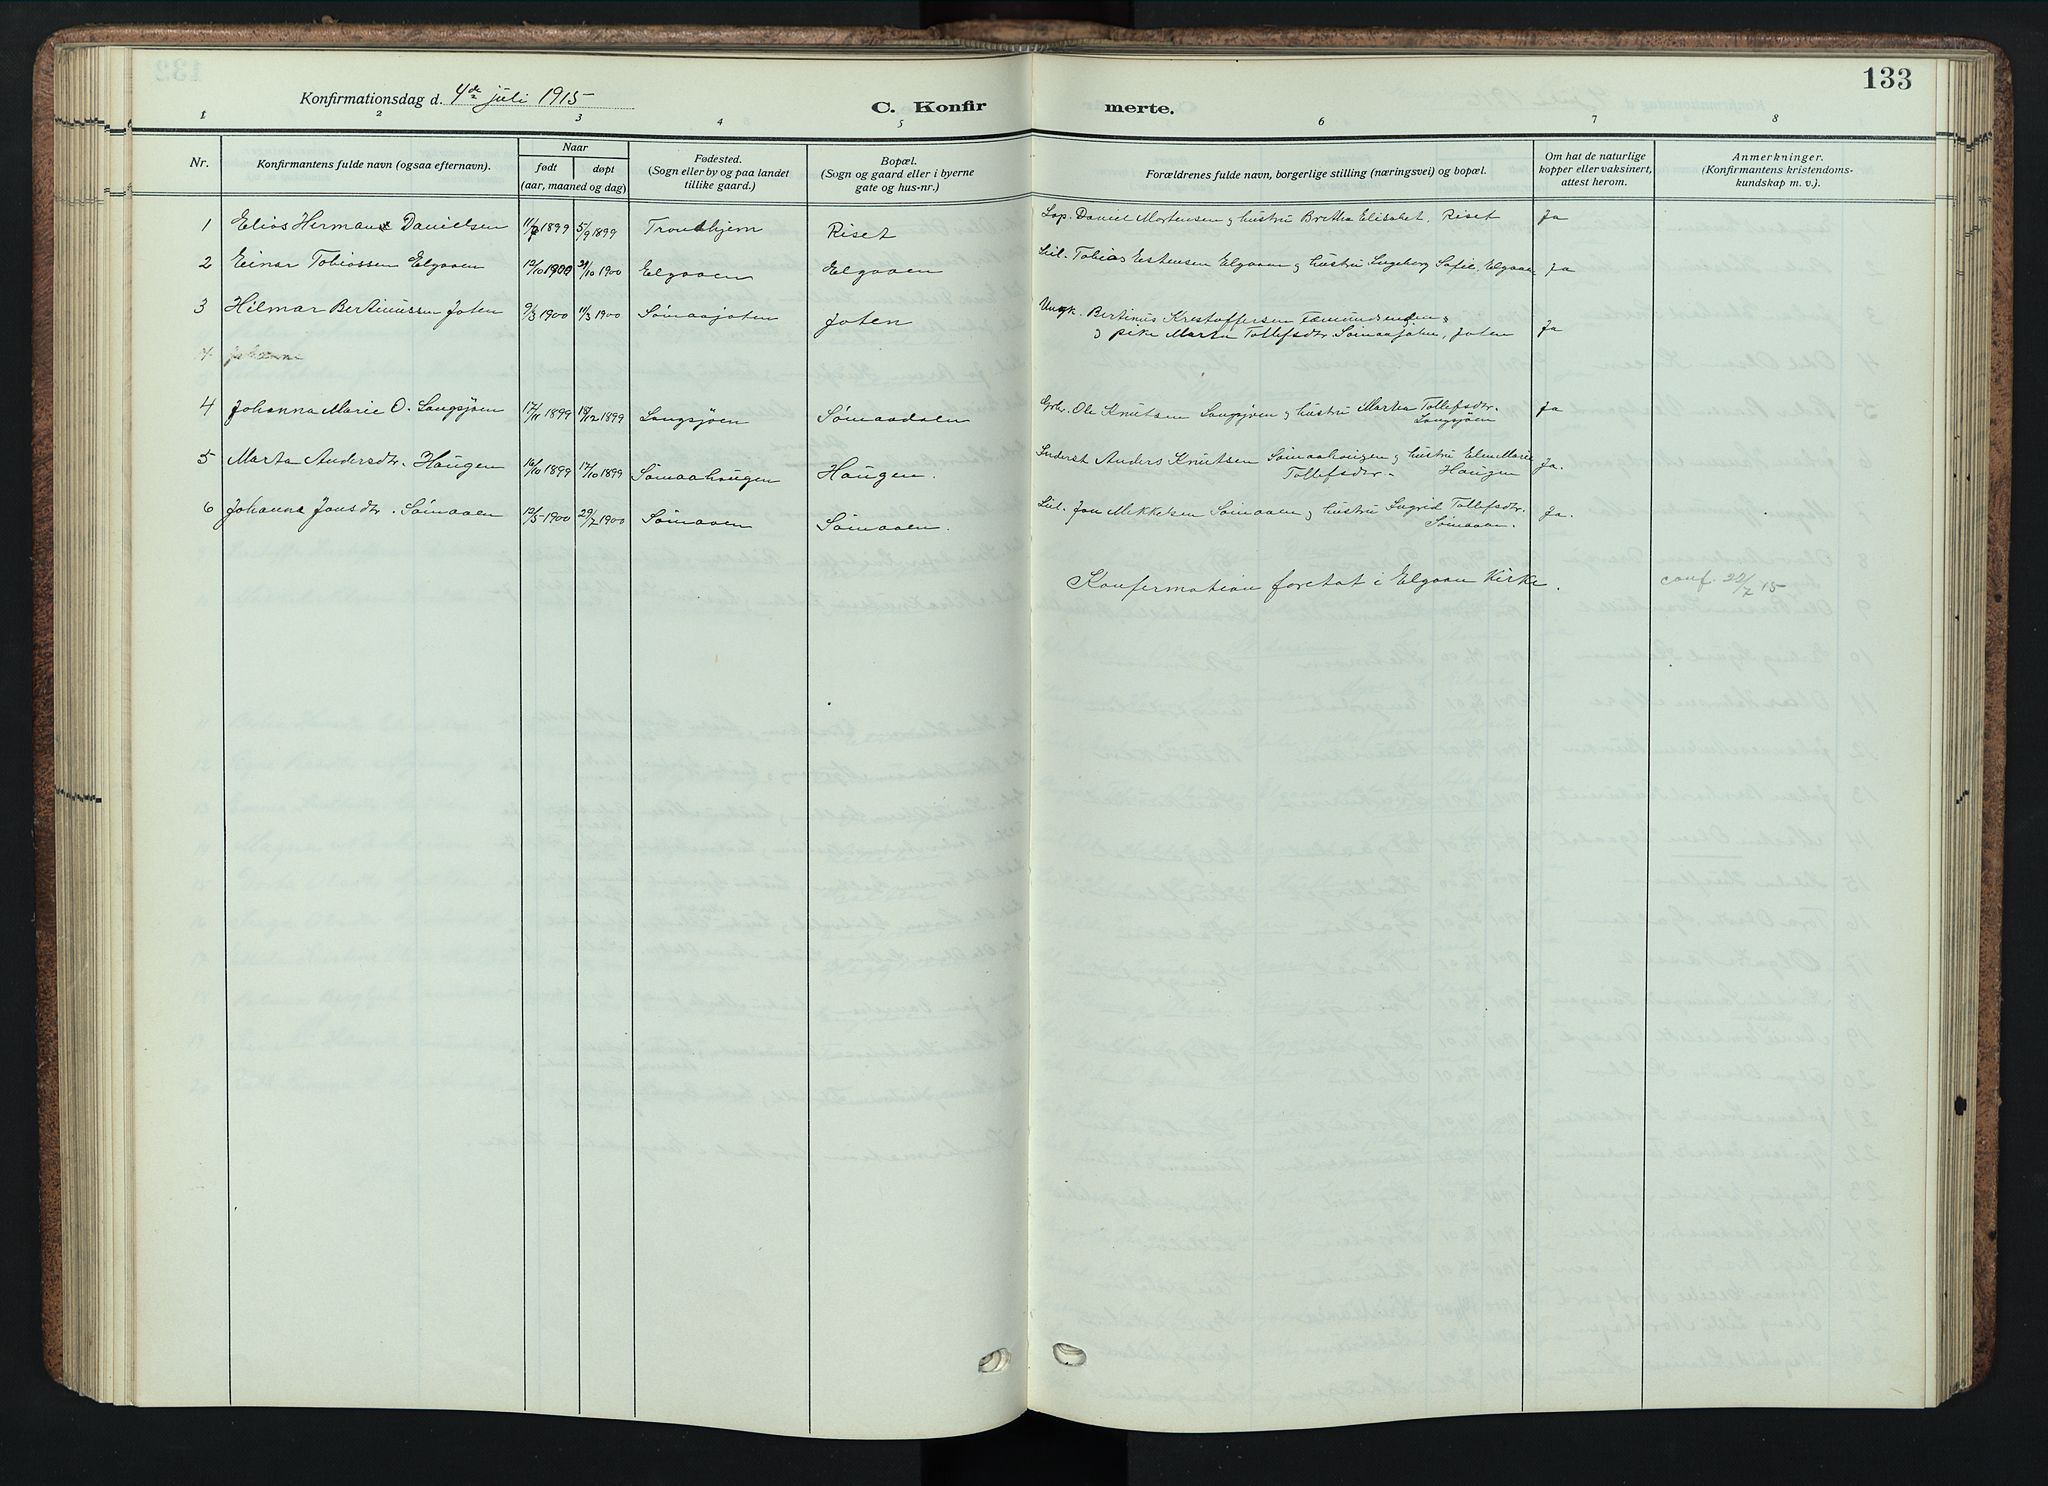 133
Konfirmationsdag d. 4de juli 1915
C. Konfirmerte.
1 2 3 4 5 6 7 8
Nr. Konfirmantens fulde navn (ogsaa efternavn). Naar født døpt (aar, maaned og dag) Fødested. (Sogn eller by og paa landet tillike gaard.) Bopæl. (Sogn og gaard eller i byerne gate og hus-nr.) Forældrenes fulde navn, borgerlige stilling (næringsvei) og bopæl. Om hat de naturlige kopper eller vaksinert, attest herom. Anmerkninger. (Konfirmantens kristendomskundskap m. v.).
1 Elias Herman Danielsen 11/7 1899 5/9 1899 Trondhjem Riset Lap. Daniel Mortensen og hustru Bretha Elisabet. Riset Ja
2 Einar Tobiassen Elgaaen 12/10 1900 21/10 1900 Elgaaen Elgaaen Sel. Tobias Estensen Elgaaen og hustru Ingeborg Sofie, Elgaaen Ja
3 Hilmar Bertinussen Joten 9/3 1900 11/3 1900 Sømaajoten Joten Ungk. Bertinus Krestoffersen Fæmundsenden
og pike Marta Tollefsdtr Sømaajoten, Joten Ja
4 Johanna
4 Johanna Marie O. Langsjøen 17/11 1899 18/12 1899 Langsjøen Sømaadalen Gbr. Ole Knutsen Langsjøen og hustru Martha Tollefsdtr.
Langsjøen Ja
5 Marta Andersdtr. Haugen 16/10 1899 17/10 1899 Sømaahaugen Haugen. Inderst Anders Knutsen Sømaahaugen og hustru Elen Marie
Tollefsdtr. Haugen Ja.
6 Johanna Jonsdtr. Sømaaen 12/5 1900 29/7 1900 Sømaaen Sømaaen. Sel. Jon Mikkelsen Sømaaen og hustru Ingrid Tollefsdtr.
Sømaaen. Ja.
Konfermation foretat i Elgaaen Kirke. conf. 22/7 15